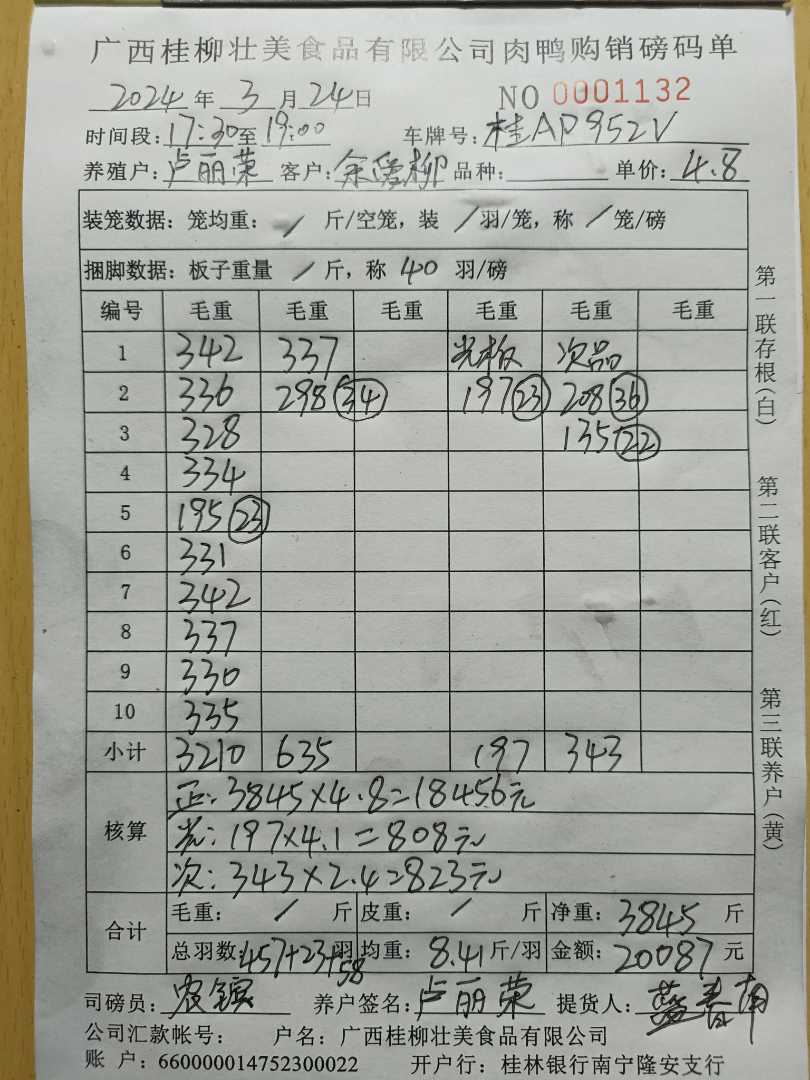 广西桂柳壮美食品有限公司肉鸭购销磅码单
2024年 3月24日 NO 0001132
时间段:17:30至19:00 车牌号:桂AP952V
养殖户:卢丽荣 客户:余爱柳 品种: 单价:4.8
装笼数据:笼均重:/斤/空笼,装/羽/笼,称/笼/磅
捆脚数据:板子重量/斤,称40羽/磅
编号 毛重 毛重 毛重 毛重 毛重 毛重
1 342 337 光板 次品
2 336 298(34) 197(23) 208(36)
3 328 135(22)
4 334
5 195(23)
6 331
7 342
8 337
9 330
10 335
小计 3210 635 197 343
核算 正:3845×4.8=18456元
光:197×4.1=808元
次:343×2.4=823元
合计 毛重:/斤 皮重:/斤 净重:3845斤
总羽数:457+23+58羽 均重:8.41斤/羽 金额:20087元
司磅员:农 养户签名:卢丽荣 提货人:
公司汇款帐号: 户名:广西桂柳壮美食品有限公司
账 户:660000014752300022 开户行:桂林银行南宁隆安支行
第一联存根(白) 第二联客户(红) 第三联养户(黄)